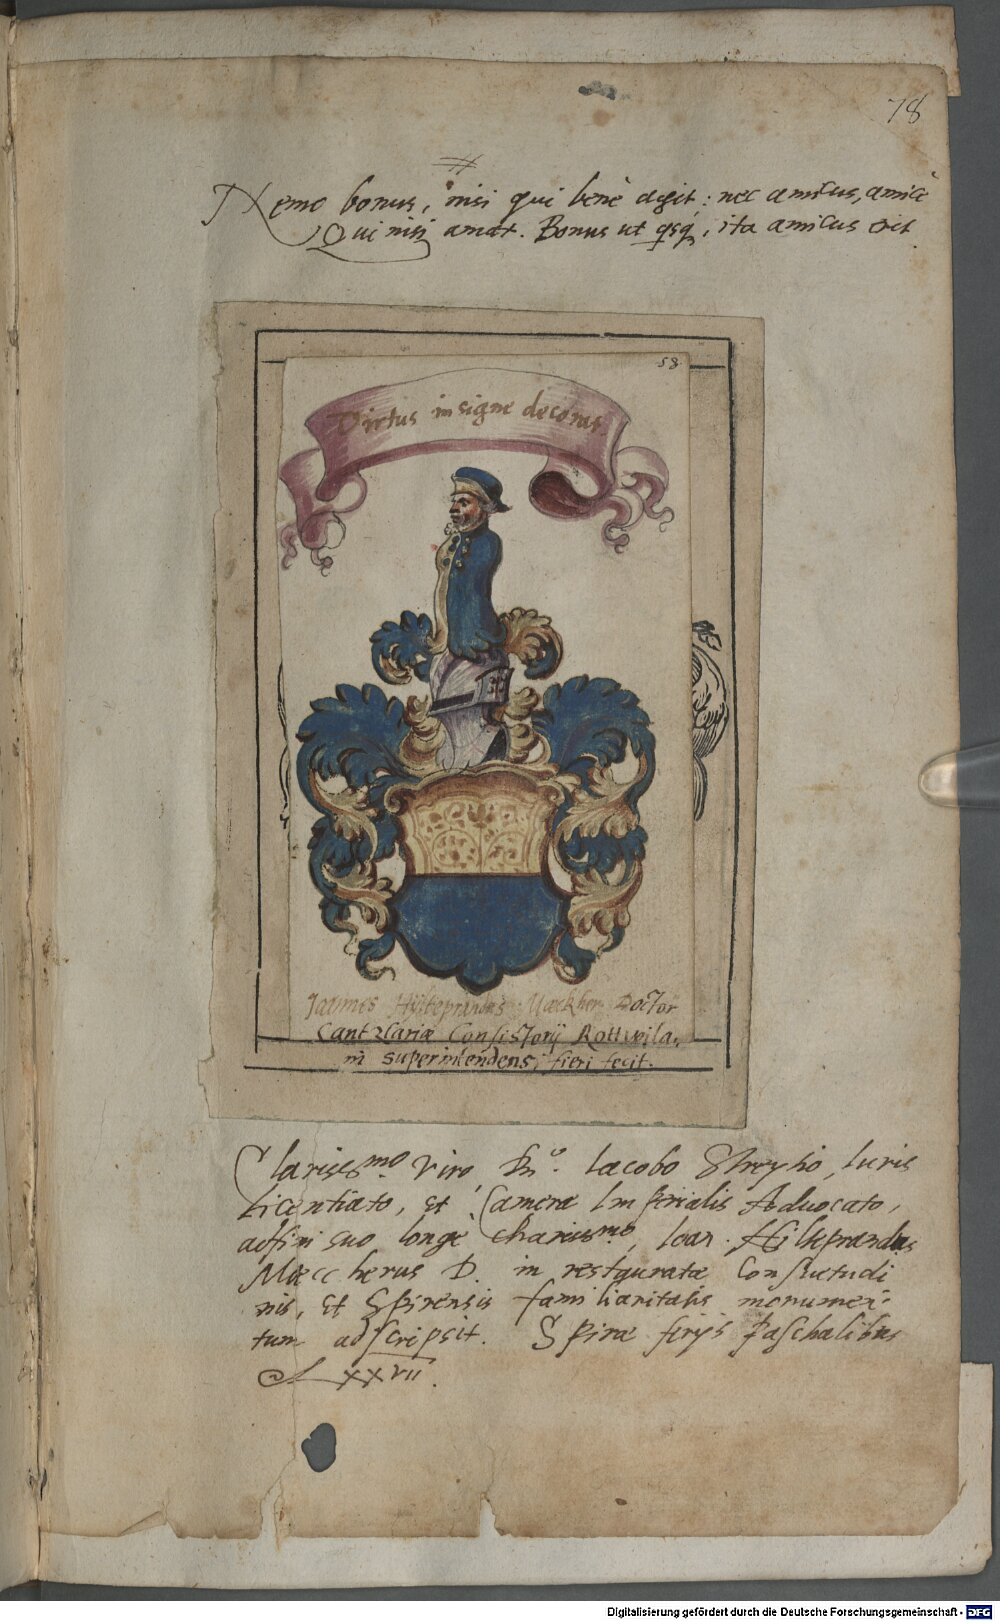 78
Nemo bonus, nisi qui benè agit: nec amicus, amicè
Qui nisi amat. Bonus ut qsq́, ita amicus erit.
58
Virtus insigne decorat.
Joannes Hylteprandus Mackher Doctor
Cantzlariæ Consistorij Rottwila,
ni superintendens, fieri fecit.
Clariss.mo Viro, Dn̄o. Iacobo Streytio, Iuris
Licentiato, et Cameræ Imperialis Aduocato,
adfini suo longè chariss.mo, Ioan. Hilteprandus
Mæccherus D. in restauratæ Consuetudi
nis, et Spirensis familiaritatis monumen-
tum adscripsit. Spiræ ferijs Paschalibus
LXXVII.
Digitalisierung gefördert durch die Deutsche Forschungsgemeinschaft - DFG